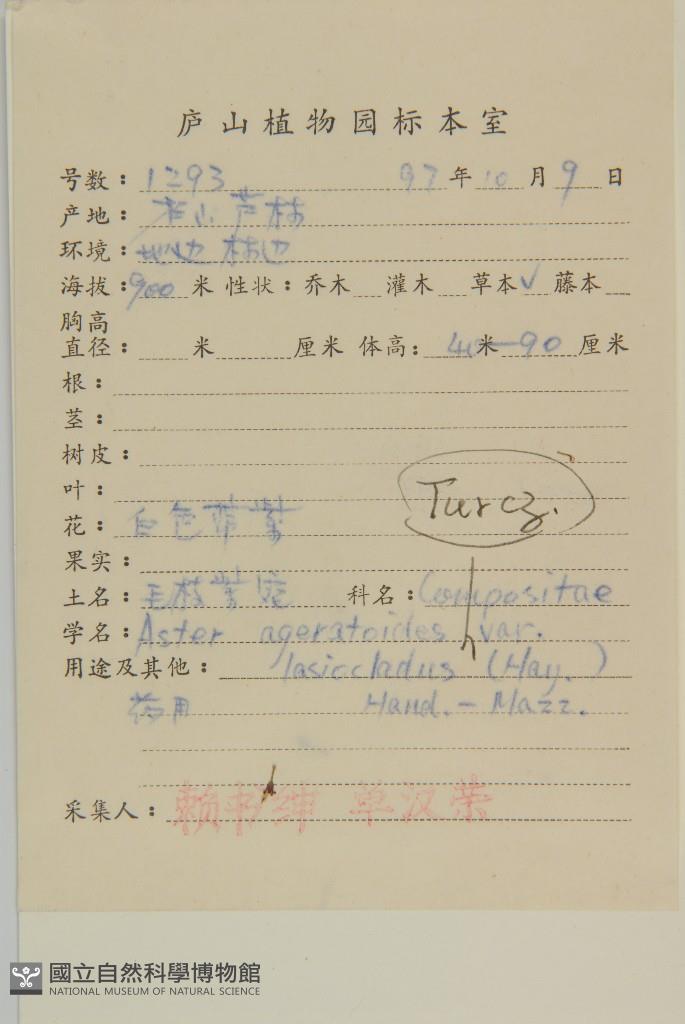 庐山植物园标本室
号数：1293 97年10月9日
产地：庐山芦林
环境：地边 林边
海拔：900米 性状：乔木 灌木 草本√ 藤本
胸高
直径： 米 厘米 体高： 40米—90厘米
根：
茎：
树皮：
叶：
Turcz.
花：白色带紫
果实：
土名：毛枝紫菀 科名：Compositae
学名：Aster ageratoides var.
用途及其他： lasiocladus (Hay.)
药用 Hand.-Mazz.
采集人：赖书绅 单汉荣
國立自然科學博物館
NATIONAL MUSEUM OF NATURAL SCIENCE